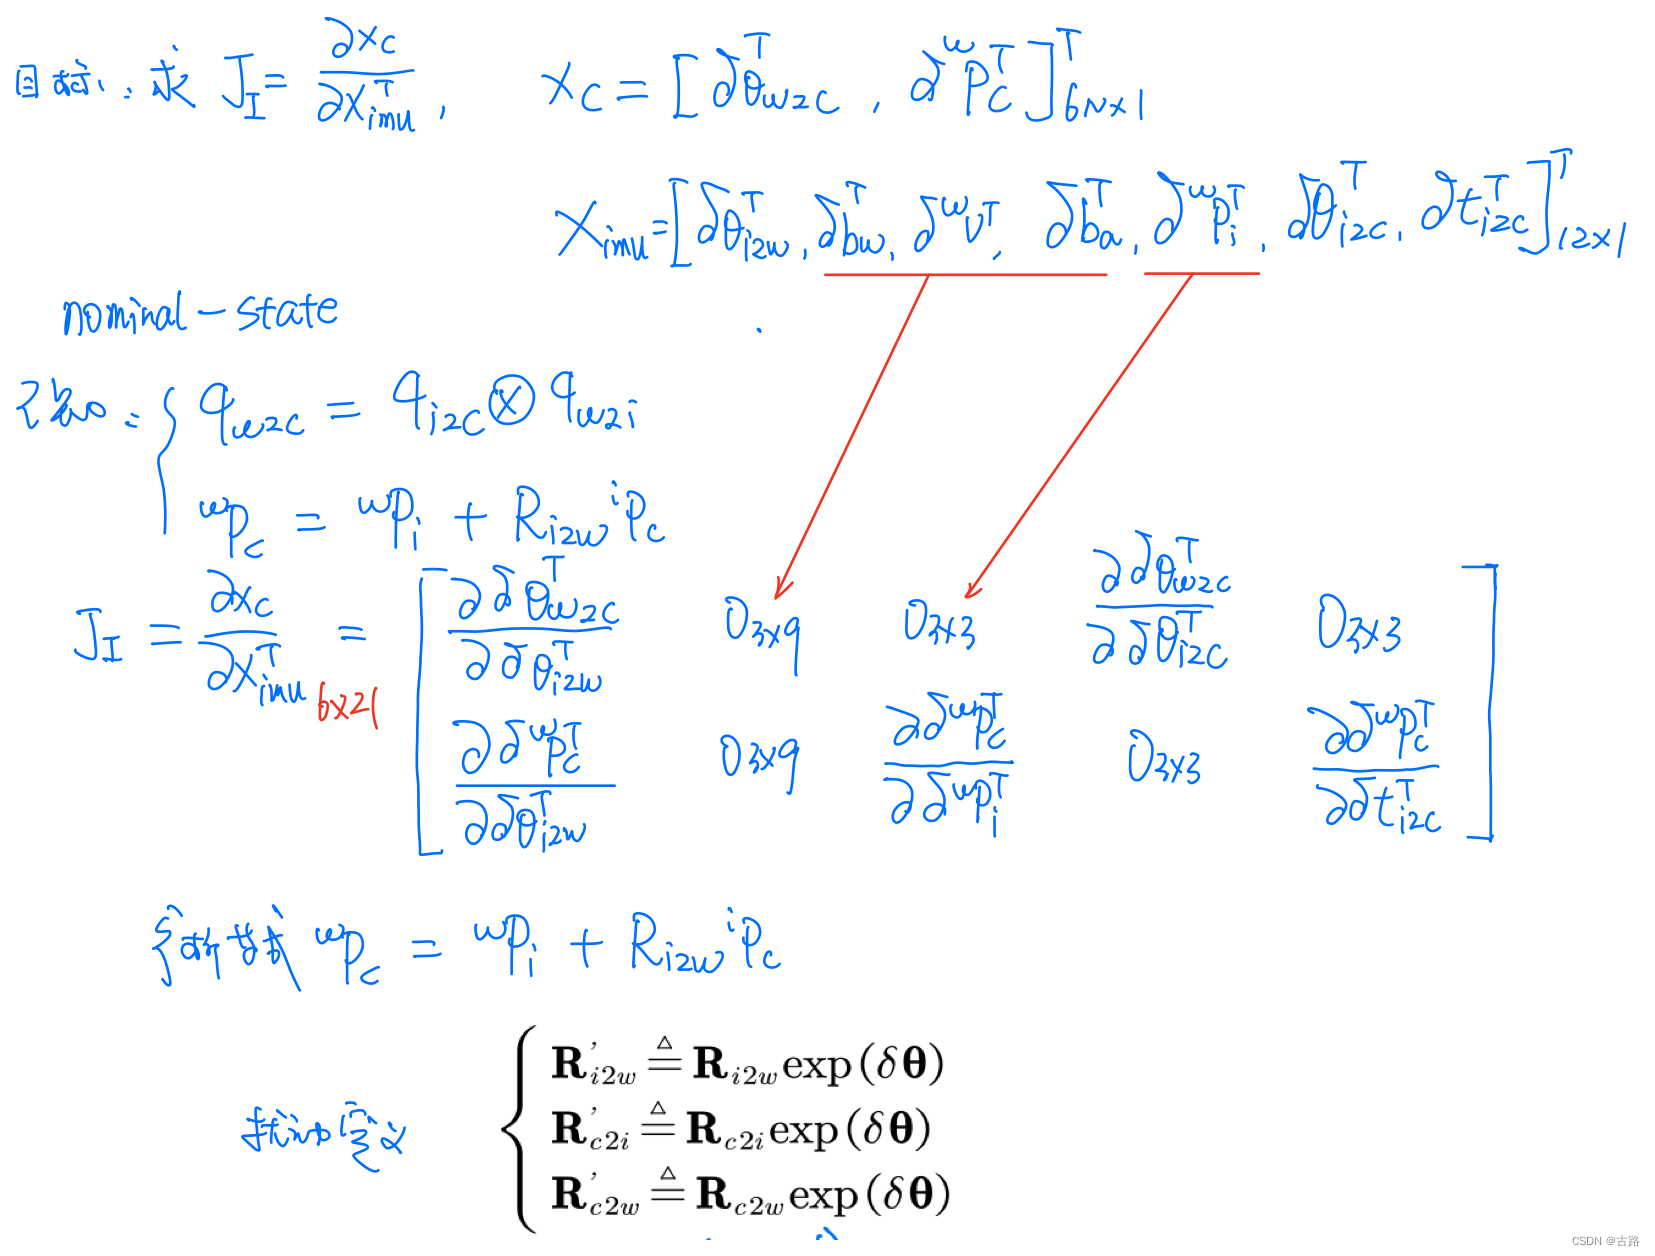 目标: 求 J_I = ∂x_c / ∂x_imu^T , x_c = [δθ_w2c^T , δ^w p_c^T]^T_6N×1
x_imu = [δθ_i2w^T , δb_w^T , δ^w v^T , δb_a^T , δ^w p_i^T , δθ_i2c^T , δt_i2c^T]^T_12×1
nominal-state
已知: { q_w2c = q_i2c ⊗ q_w2i
^w p_c = ^w p_i + R_i2w ^i p_c
J_I = ∂x_c / ∂x_imu^T 6×21 = [ ∂δθ_w2c^T / ∂δθ_i2w^T 0_3×9 0_3×3 ∂δθ_w2c^T / ∂δθ_i2c^T 0_3×3
∂δ^w p_c^T / ∂δθ_i2w^T 0_3×9 ∂δ^w p_c^T / ∂δ^w p_i^T 0_3×3 ∂δ^w p_c^T / ∂δt_i2c^T ]
^w p_c = ^w p_i + R_i2w ^i p_c
扰动定义 { R'_i2w ≜ R_i2w exp(δθ)
R'_c2i ≜ R_c2i exp(δθ)
R'_c2w ≜ R_c2w exp(δθ)
CSDN @古路